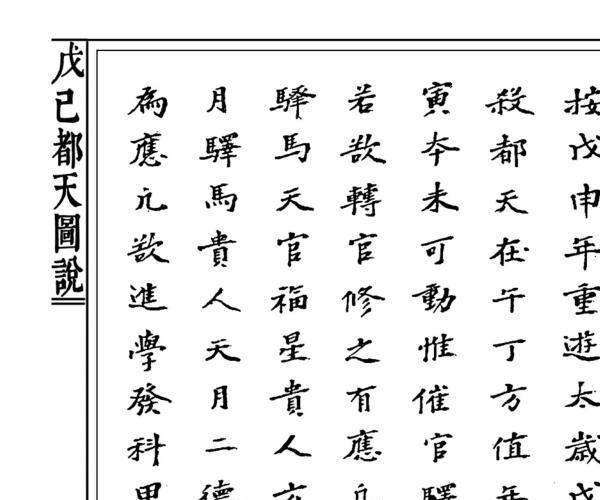 按戊申年重遊太歲戊
殺都天在午丁方值年
寅夲未可動惟催官驛
若欲轉官修之有應凡
驛馬天官福星貴人六
月驛馬貴人天月二德
為應凢欲進學發科甲
戊己都天圖說